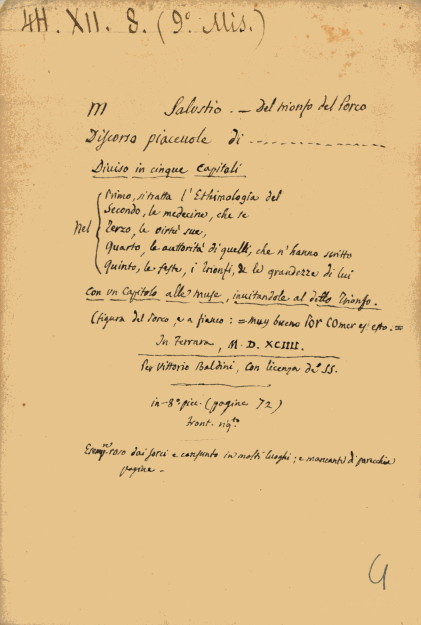 4H. XII. 8. (9º Mis.)
M Salustio. — Del trionfo del Porco
Discorso piaceuole di ....................
Diuiso in cinque Capitoli
Nel
Primo, si tratta l'Ethimologia del
Secondo, le medecine, che se
Terzo, le virtù sue,
Quarto, le autorità di quelli, che n'hanno scritto
Quinto, le feste, i Trionfi, & le grandezze di lui
Con vn Capitolo alle Muse, inuitandole al detto Trionfo.
(figura del Porco, e a fianco: = Muy bueno Por Comer es esto. =
In Ferrara, M. D. XCIIII.
Per Vittorio Baldini, Con licenza de' SS.
in-8º picc. (pagine 72)
Front. rig.to
roso dai sorci e consunto in molti luoghi; e mancante di parecchie
pagine -